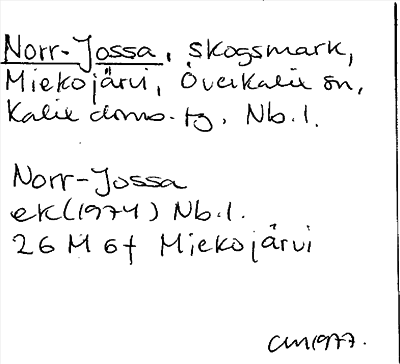 Norr-Jossa, skogsmark,
Miekojärvi, Överkalix sn,
Kalix doms.tg, Nb.l.
Norr-Jossa
ek(1974) Nb.l.
26 M 6f Miekojärvi
CM1977.